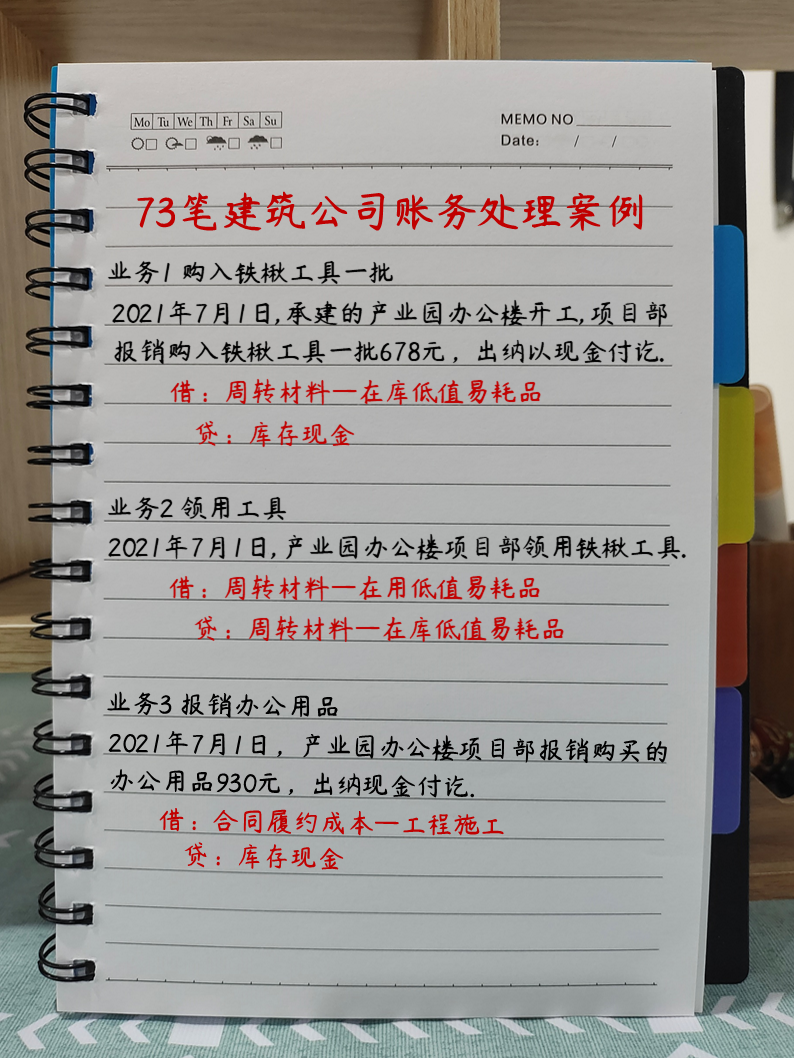 Mo Tu We Th Fr Sa Su
MEMO NO
Date: / /
73笔建筑公司账务处理案例
业务1 购入铁楸工具一批
2021年7月1日,承建的产业园办公楼开工,项目部
报销购入铁楸工具一批678元，出纳以现金付讫.
借：周转材料—在库低值易耗品
贷：库存现金
业务2 领用工具
2021年7月1日,产业园办公楼项目部领用铁楸工具.
借：周转材料—在用低值易耗品
贷：周转材料—在库低值易耗品
业务3 报销办公用品
2021年7月1日，产业园办公楼项目部报销购买的
办公用品930元，出纳现金付讫.
借：合同履约成本—工程施工
贷：库存现金